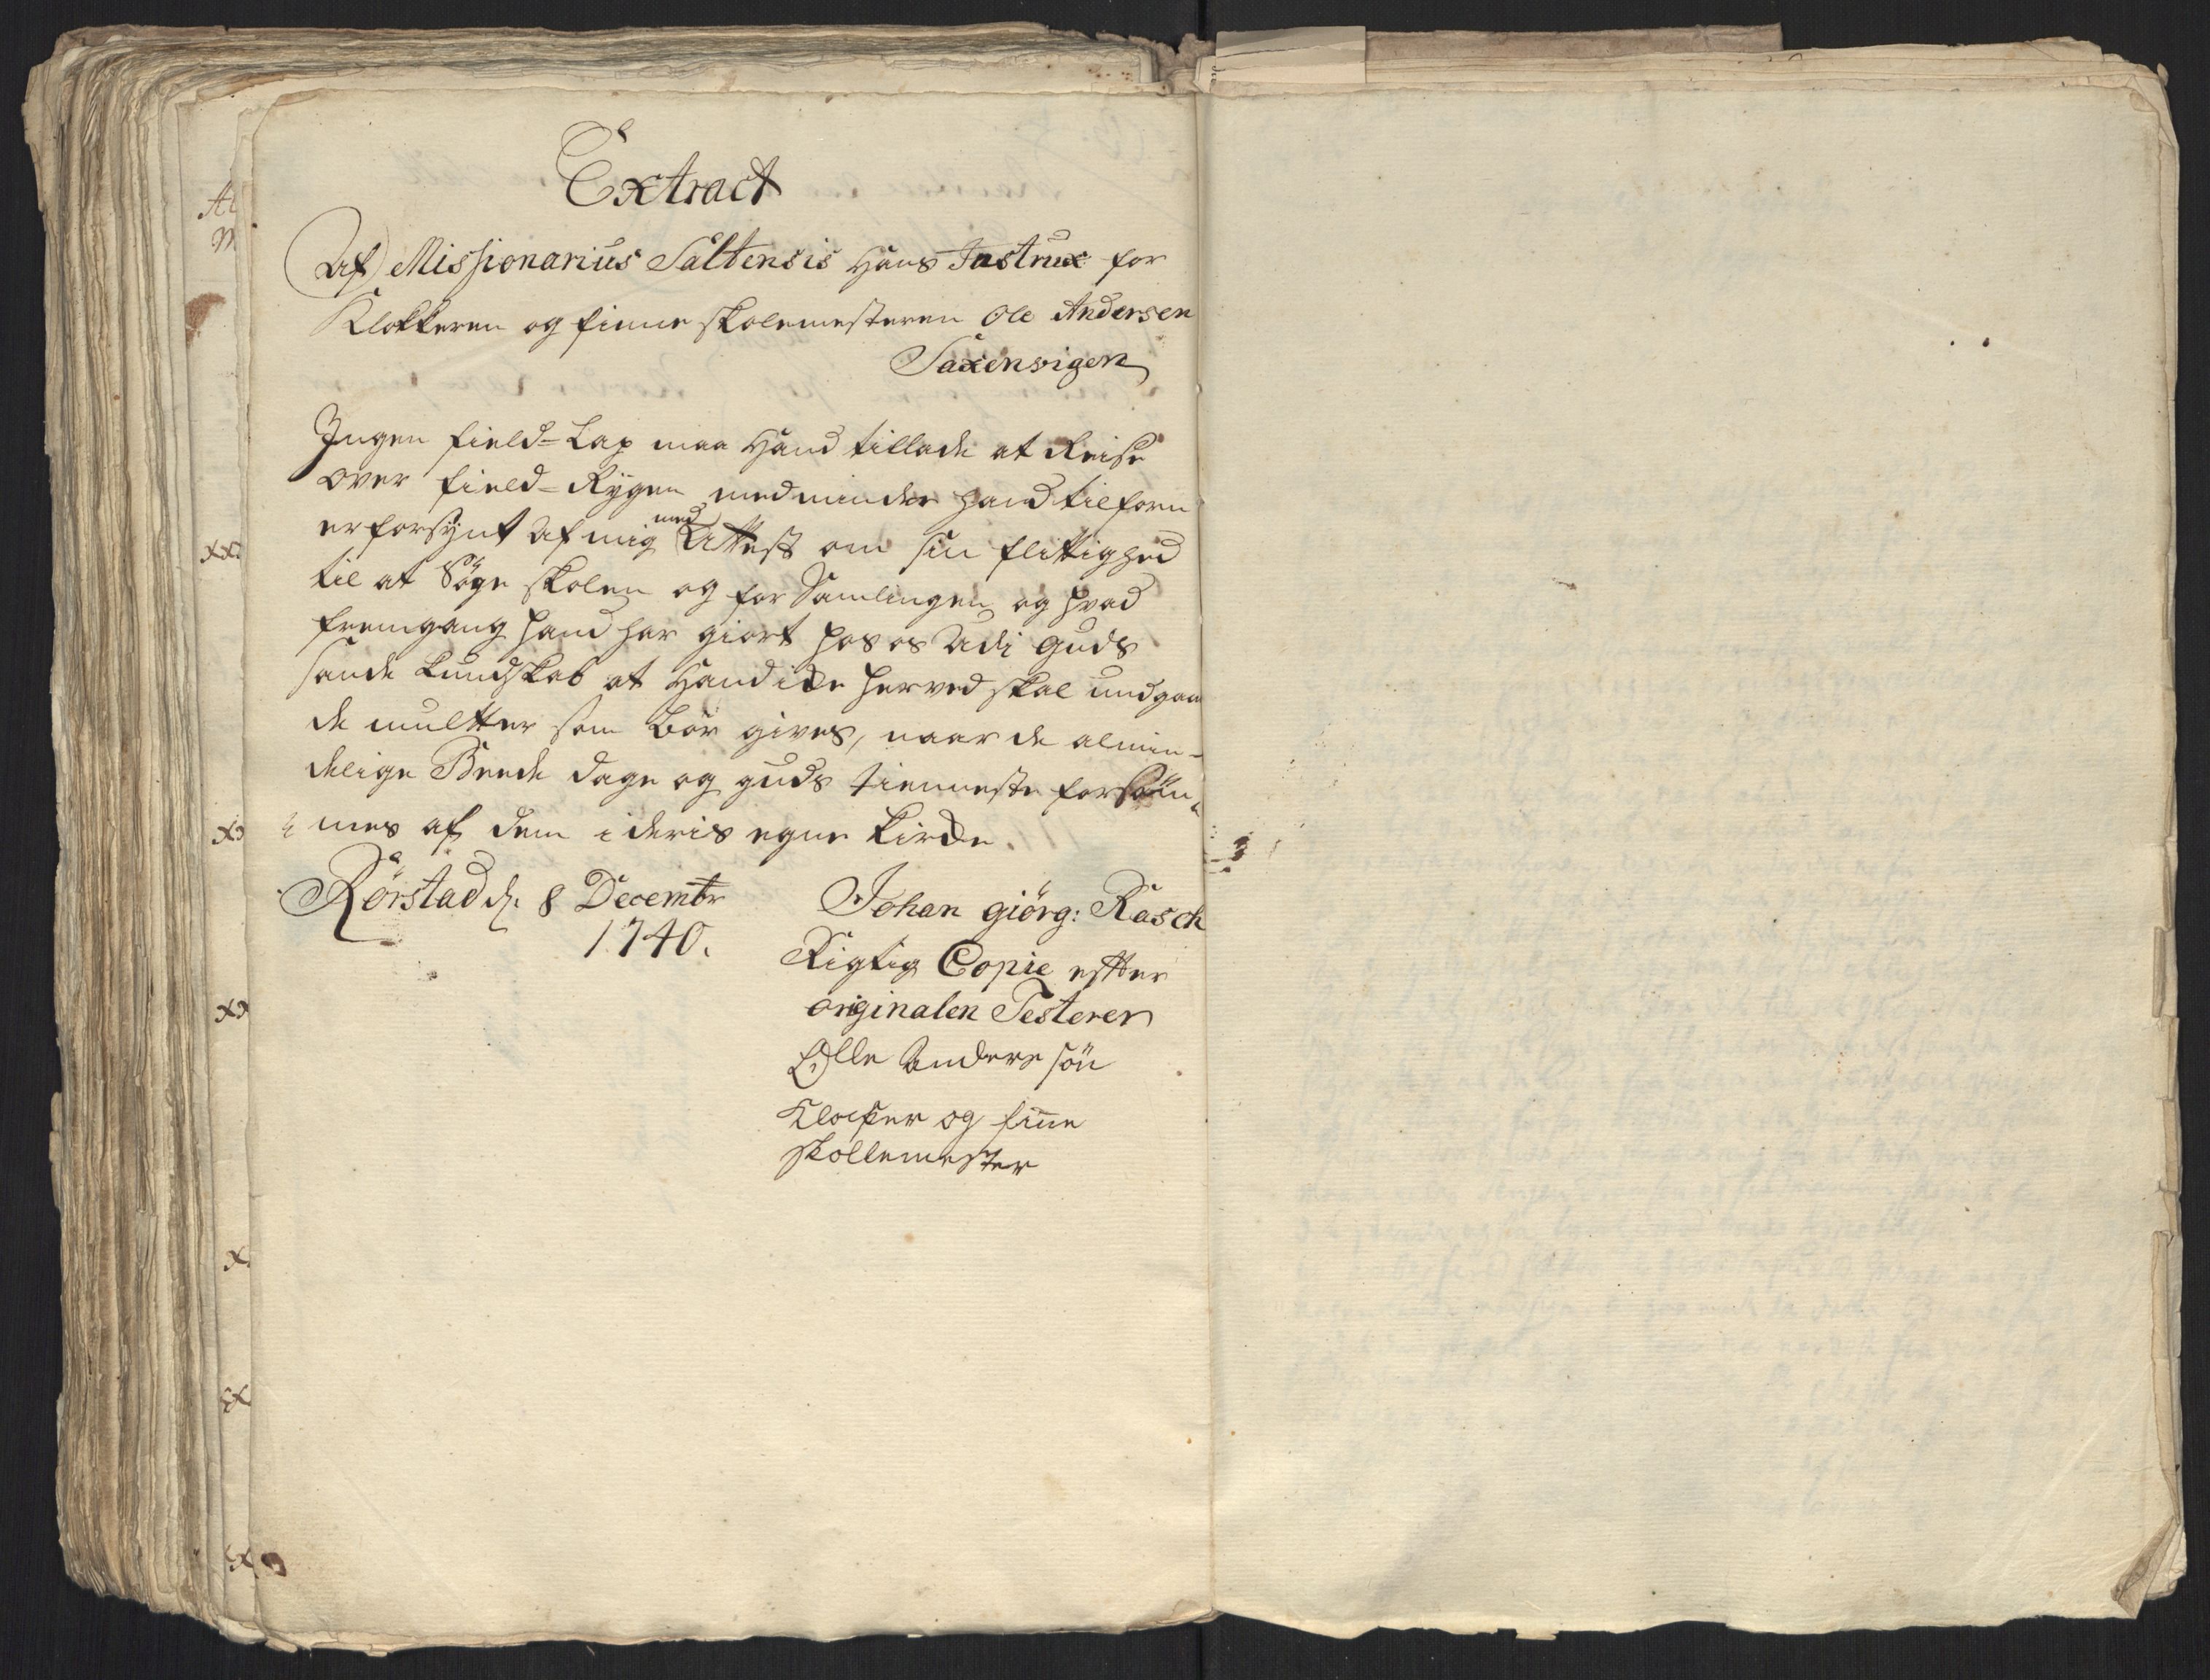 Extract
Af Missionarius Saltensis Hans Instrux for
Klokkeren og finne skolemesteren Ole Andersen
Saxenvigen
Ingen field-Lap maa Hand tillade at Reise
over field-Rygen medminder hand tilforn
er forsynt af mig med Attest om sin flittighed
til at Söge skolen og for Samlingen og hvad
fremgang hand har giort hos os Udi Guds
sande kundskab at Hand icke herved skal undgaa
de multter som bör gives, naar de almin-
delige Beede dage og guds tienneste forsöm-
mes af dem i deris egne Kircke.
Rörstad d. 8 Decembr
1740.
Johan giörg: Rasch
Rigtig Copie effter
originalen Testerer
Olle Anders sön
Klocker og finne
skollemester